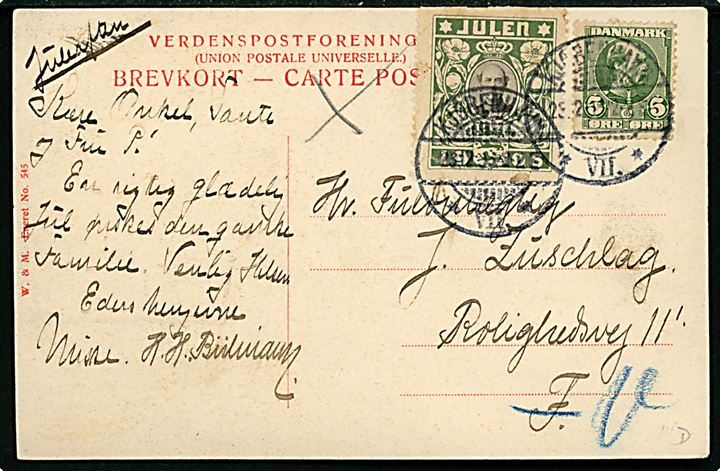 Juleaftan
VERDENSPOSTFORENING
(UNION POSTALE UNIVERSELLE.)
BREVKORT — CARTE POS
JULEN
DANMARK
5 5
ØRE ØRE
VII.
W. & M. Eneret No. 545
Kære Onkel, Tante
og Frk P.!
En rigtig glædelig
Jul ønskes den ganske
Familie. Venlig Hilsen
Eders hengivne
Misse. H. H.
Hr. Fuldmægtig
J. Zuschlag.
Rolighedsvej 11'
F. V
D